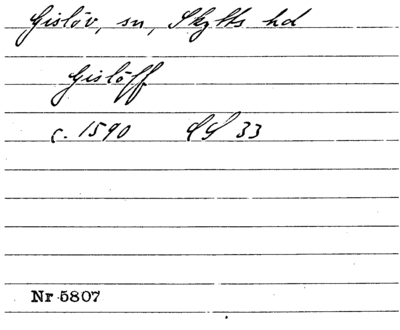 Gislöv, sn, Skytts hd
Gislöff
c. 1590 LS 33
Nr 5807